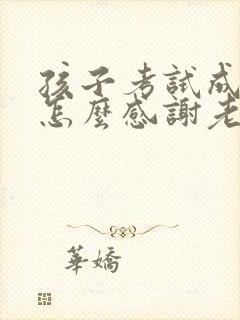 孩子考試成
怎麼感謝老
華嬌